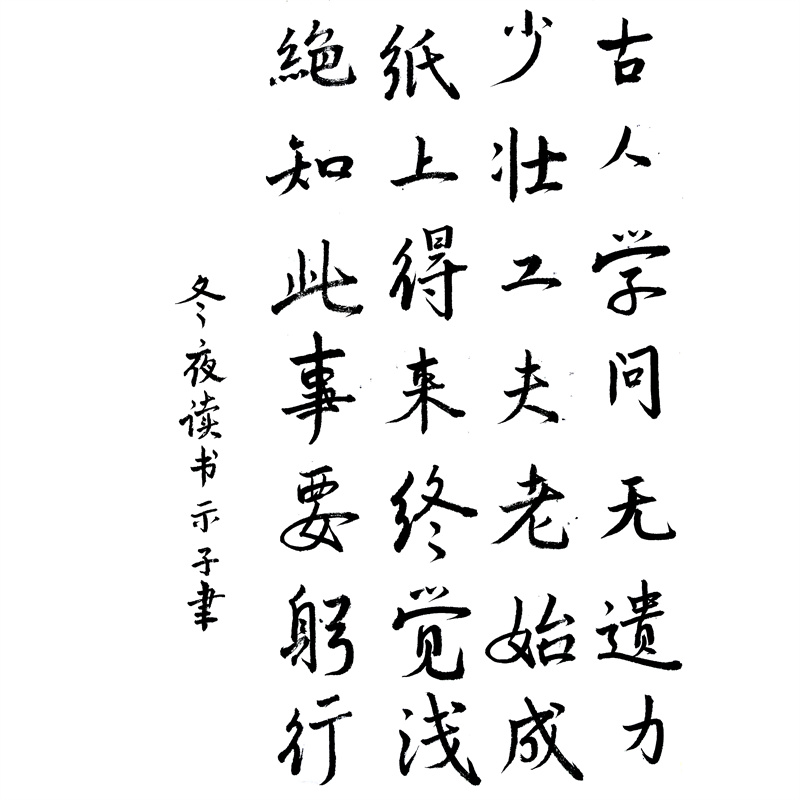 古人学问无遗力
少壮工夫老始成
纸上得来终觉浅
絶知此事要躬行
冬夜读书示子聿